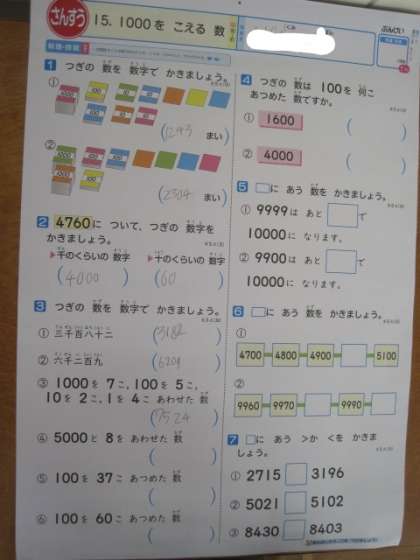 さんすう
15. 1000を こえる 数
1 つぎの 数を 数字で かきましょう。
①
1000 100 10 10
100 100 10 10
(1243 まい)
②
1000 100 100
1000 100
(2304 まい)
2 4760に ついて、つぎの 数字を
かきましょう。
▶千のくらいの 数字
(4000)
▶十のくらいの 数字
(60)
3 つぎの 数を 数字で かきましょう。
① 三千百八十二 (3182)
② 六千二百九 (6209)
③ 1000を 7こ,100を 5こ,
10を 2こ,1を 4こ あわせた 数
(7524)
④ 5000と 8を あわせた 数
( )
⑤ 100を 37こ あつめた 数
( )
⑥ 100を 60こ あつめた 数
( )
4 つぎの 数は 100を 何こ
あつめた 数ですか。
① 1600 ( )
② 4000 ( )
5 □に あう 数を かきましょう。
① 9999は あと □で
10000に なります。
② 9900は あと □で
10000に なります。
6 □に あう 数を かきましょう。
①
4700 4800 4900 □ 5100
②
9960 9970 □ 9990 □
7 □に あう >か <を かきま
しょう。
① 2715 □ 3196
② 5021 □ 5102
③ 8430 □ 8403